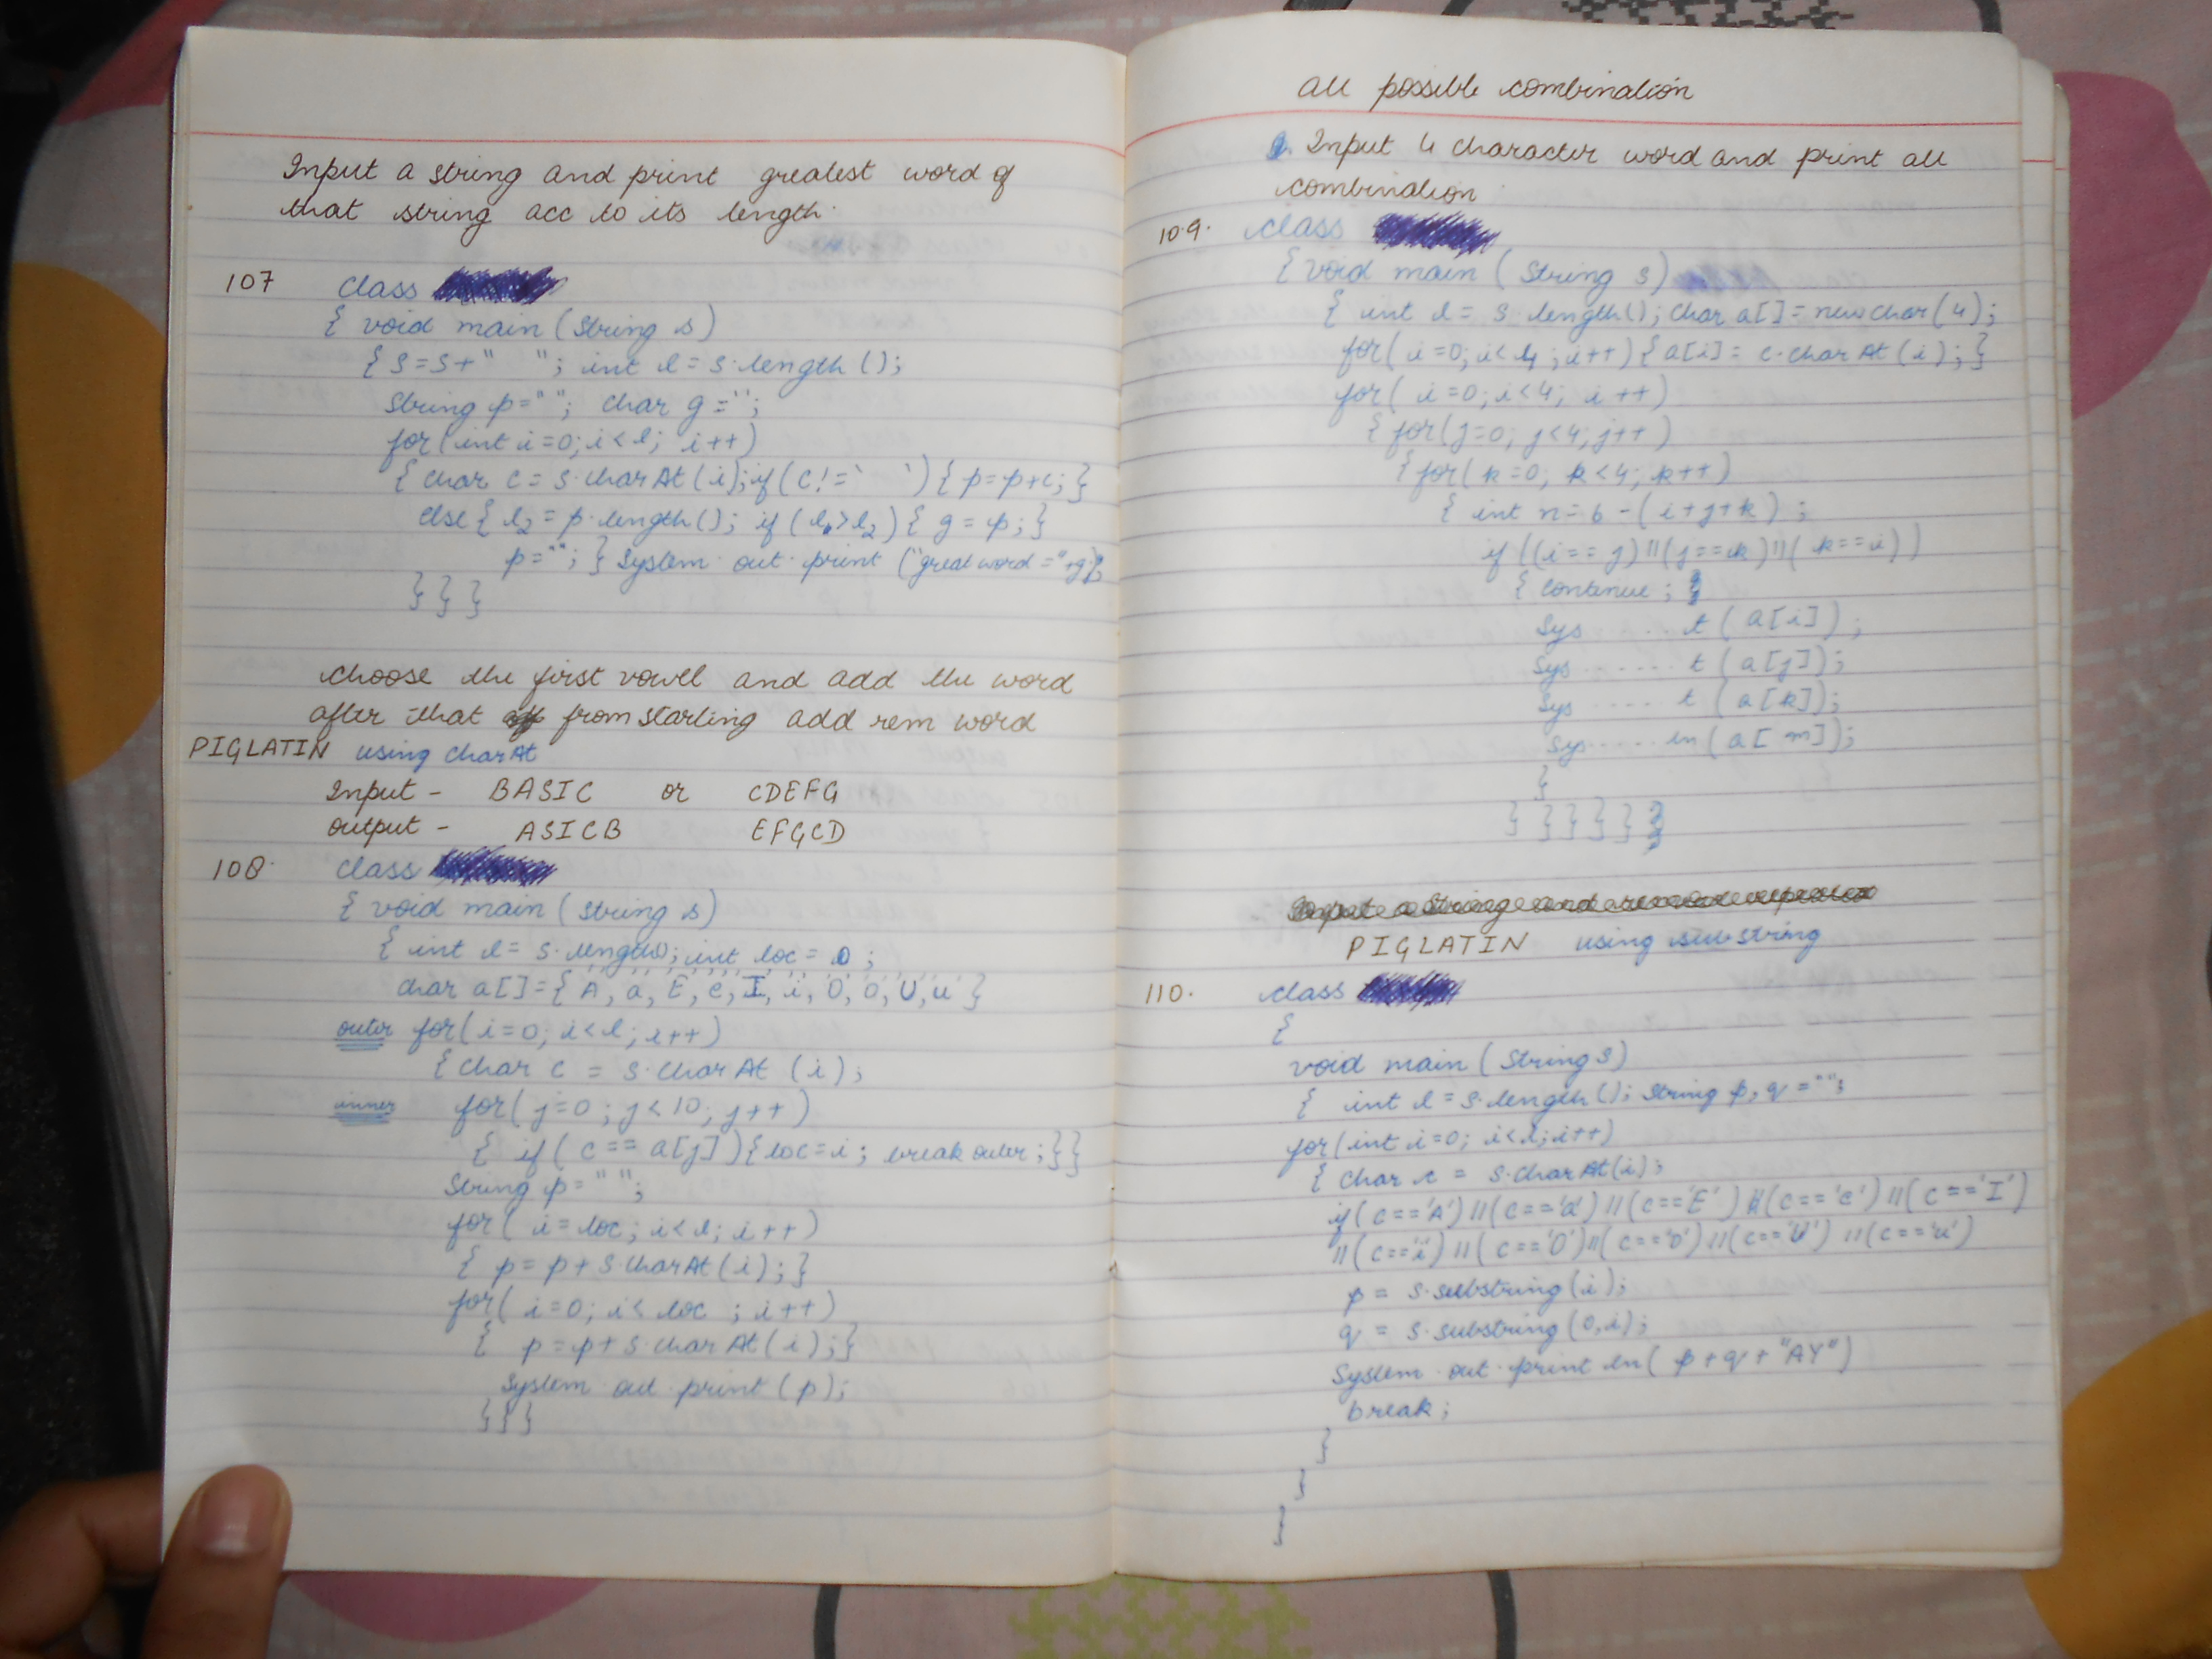 Input a string and print greatest word of
that string acc to its length.
107 class
{ void main (String s)
{ s=s+" "; int l = s.length ();
String p=" "; char g ='';
for(int i=0; i<l; i++)
{ char c = s.charAt(i); if(c!=' ') { p=p+c; }
else { l2 = p.length(); if (l1>l2) { g = p; }
p=""; } System.out.print ("great word ="+g);
} } }
choose the first vowel and add the word
after that from starting add rem word
PIGLATIN using charAt
Input - BASIC or CDEFG
output - ASICB EFGCD
108. class
{ void main (String s)
{ int l = s.length(); int loc = 0 ;
char a[]={'A','a','E','e','I','i','O','o','U','u'}
outer for(i=0; i<l; i++)
{ char c = s.charAt (i);
inner for(j=0; j<10; j++)
{ if( c == a[j]){loc=i; break outer;}}
String p=" ";
for( i=loc; i<l; i++)
{ p = p + s.charAt(i); }
for( i=0; i< loc ; i++)
{ p=p+ s.charAt(i);}
System.out.print(p);
}}}
all possible combination
Q. Input 4 character word and print all
combination
109. class
{ void main ( String s)
{ int l = s.length(); char a[]=new char(4);
for( i=0; i<4; i++) { a[i] = c.charAt(i); }
for( i=0; i<4; i++)
{ for(j=0; j<4; j++)
{ for( k=0; k<4; k++)
{ int n= 6 - (i+j+k) ;
if ((i==j)||(j==k)||( k==i))
{ continue ; }
Sys ...... t ( a[i]) ;
Sys ...... t ( a[j]);
Sys .... t ( a[k]);
Sys ..... ln ( a[ m]);
}
} } } } } }
PIGLATIN using substring
110. class
{
void main (String s)
{ int l = s.length(); String p, q = "";
for(int i=0; i<l; i++)
{ char c = s.charAt(i);
if( c=='A') ||(c=='a') ||(c=='E') ||(c=='e') ||(c=='I')
||(c=='i') ||(c=='O')||(c=='o') ||(c=='U') ||(c=='u')
p = s.substring(i);
q = s.substring(0,i);
System.out.print ln( p+q+ "AY")
break;
}
}
}